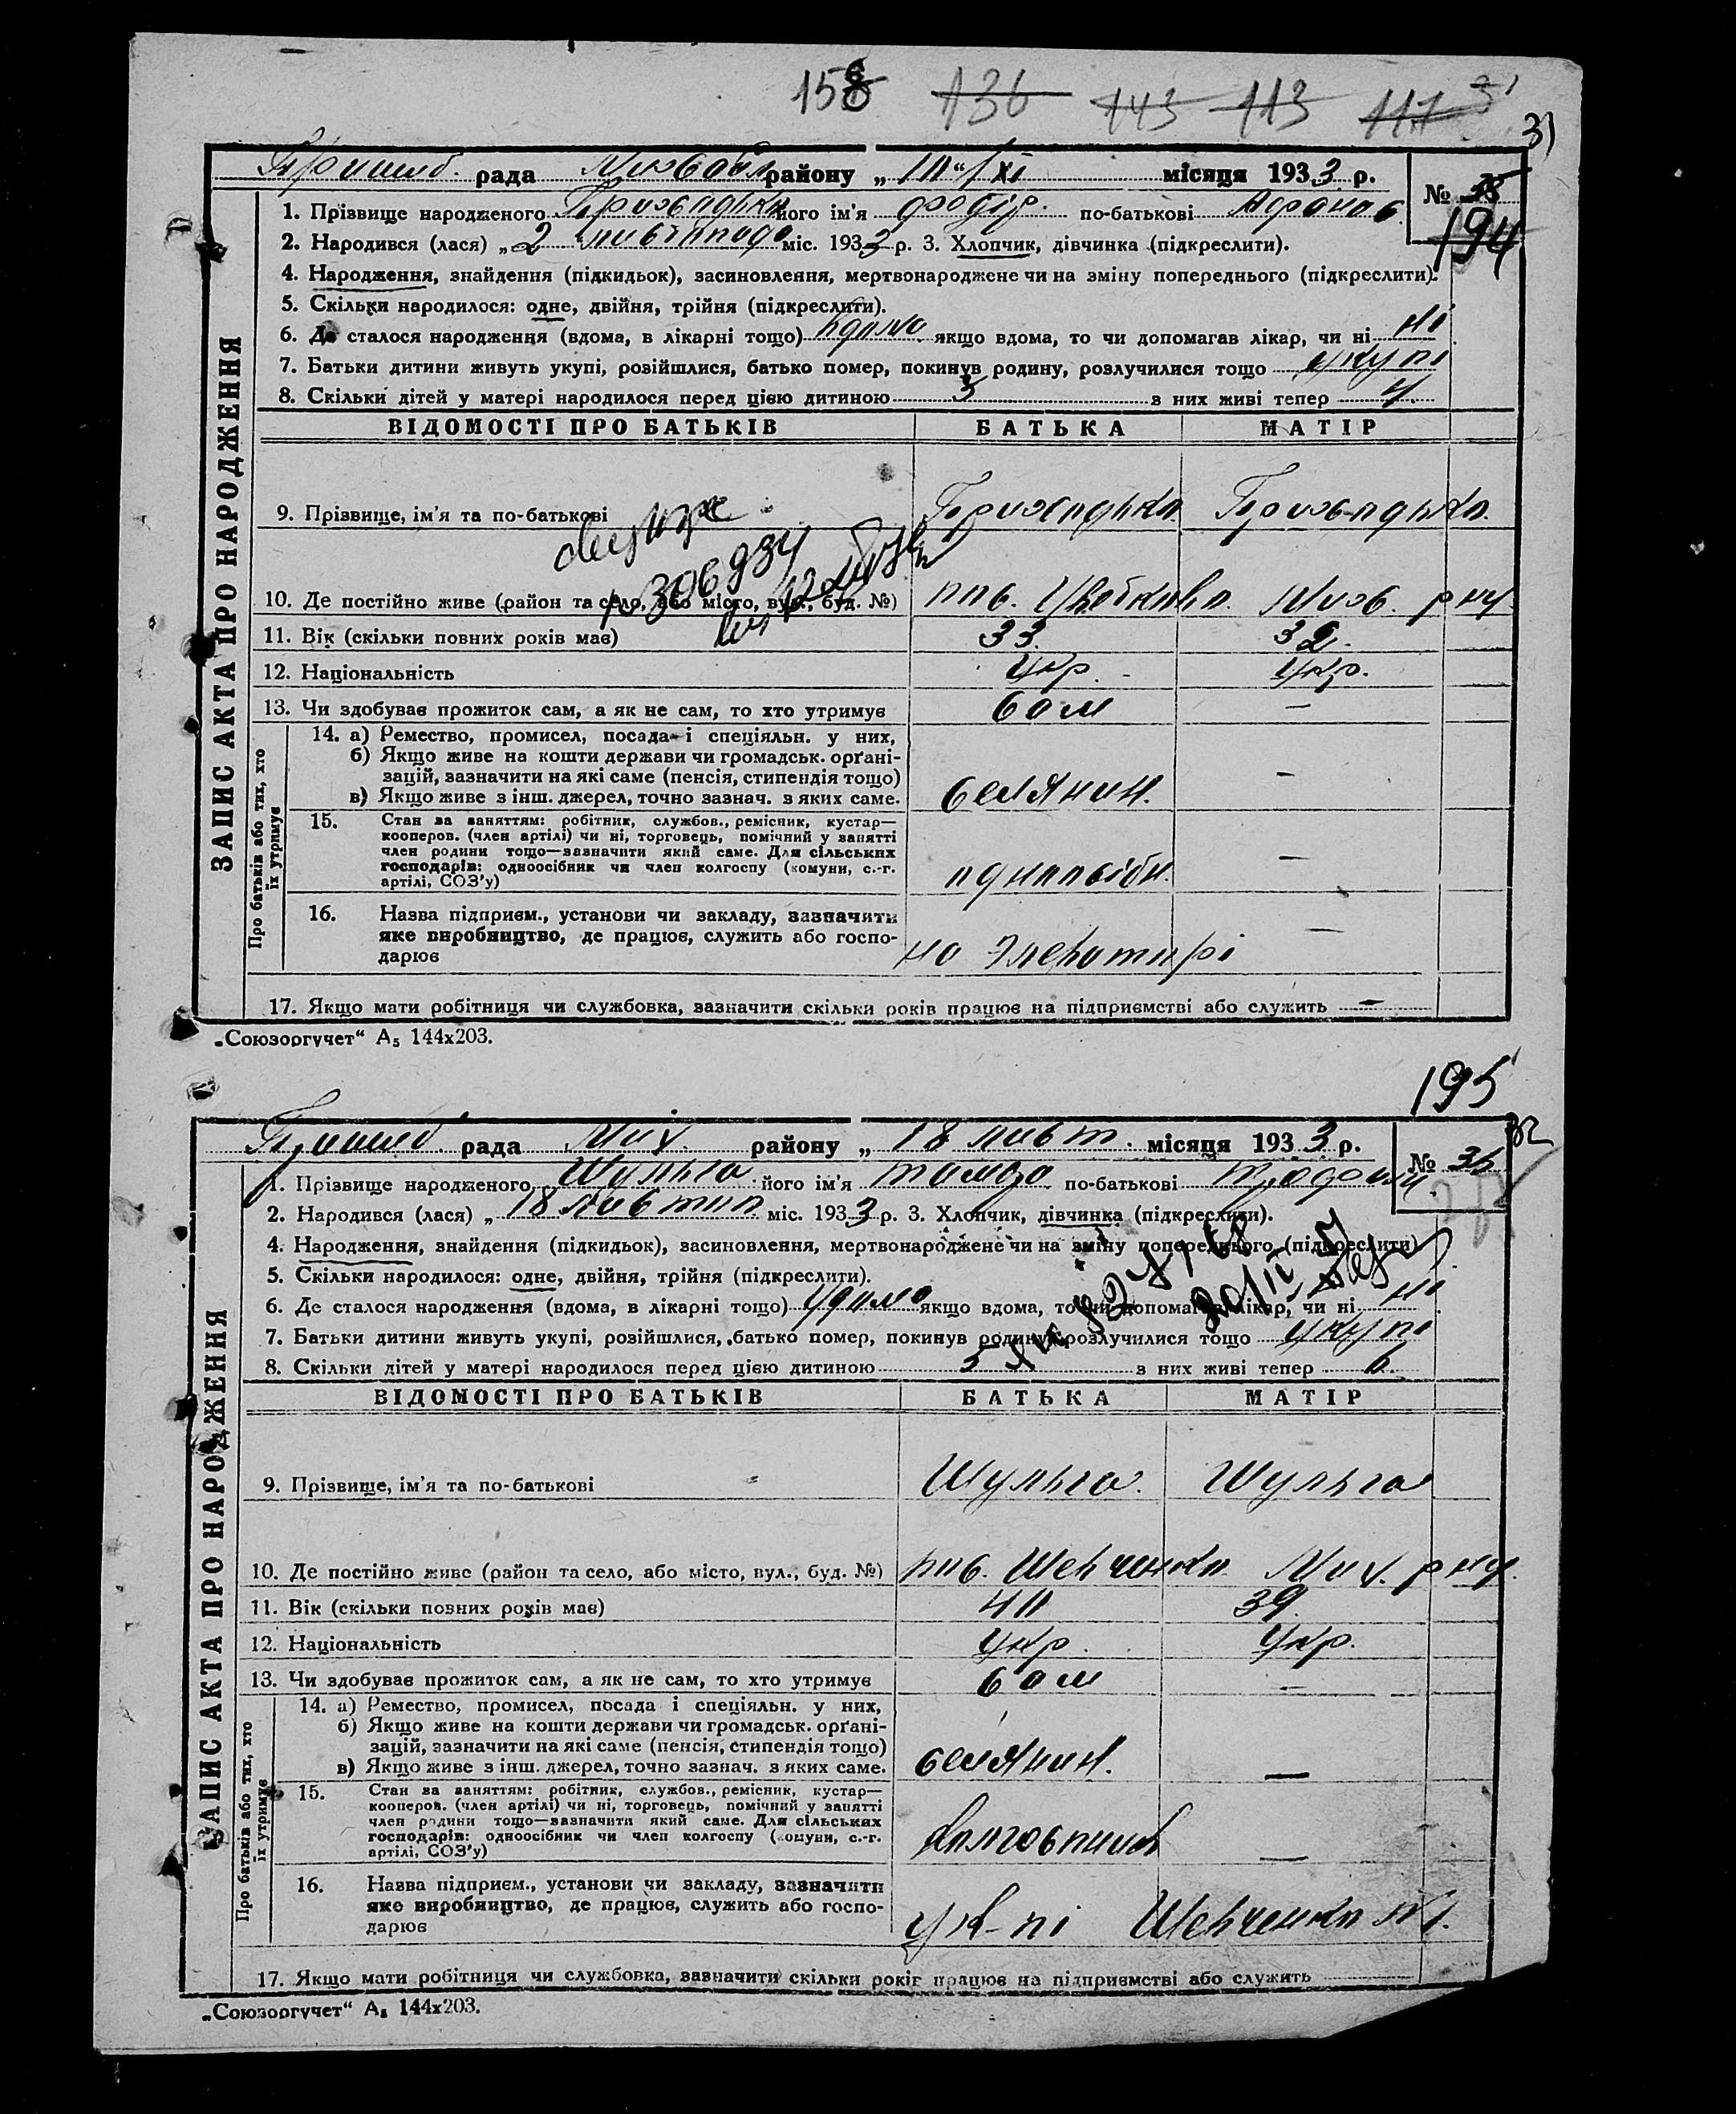 158 136 143 113 117
31
рада району „ " XI місяця 1933 р.
№ 35
194
1. Прізвище народженого його ім'я по-батькові
2. Народився (лася) „ 2 листопада міс. 1933 р. 3. Хлопчик, дівчинка (підкреслити).
4. Народження, знайдення (підкидьок), засиновлення, мертвонароджене чи на зміну попереднього (підкреслити).
5. Скільки народилося: одне, двійня, трійня (підкреслити).
6. Де сталося народження (вдома, в лікарні тощо) вдома якщо вдома, то чи допомагав лікар, чи ні ні
7. Батьки дитини живуть укупі, розійшлися, батько помер, покинув родину, розлучилися тощо укупі
8. Скільки дітей у матері народилося перед цією дитиною 3 з них живі тепер 4
ЗАПИС АКТА ПРО НАРОДЖЕННЯ
ВІДОМОСТІ ПРО БАТЬКІВ БАТЬКА МАТІР
9. Прізвище, ім'я та по-батькові
10. Де постійно живе (район та село, або місто, вул., буд. №)
11. Вік (скільки повних років має) 33 32.
12. Національність Укр. Укр.
13. Чи здобуває прожиток сам, а як не сам, то хто утримує сам –
Про батьків або тих, хто їх утримує
14. а) Ремество, промисел, посада і спеціяльн. у них,
б) Якщо живе на кошти держави чи громадськ. орґані-
зацій, зазначити на які саме (пенсія, стипендія тощо)
в) Якщо живе з інш. джерел, точно зазнач. з яких саме. селянин. –
15. Стан за заняттям: робітник, службов., ремісник, кустар—
кооперов. (член артілі) чи ні, торговець, помічний у занятті
член родини тощо—зазначити який саме. Для сільських
господарів: одноосібник чи член колгоспу (комуни, с.-г.
артілі, СОЗ'у) одноосібн. –
16. Назва підприєм., установи чи закладу, зазначити
яке виробництво, де працює, служить або госпо-
дарює –
17. Якщо мати робітниця чи службовка, зазначити скільки років працює на підприємстві або служить –
„Союзоргучет“ А5 144х203.
195
32
рада Мих. району „ 18 лист. місяця 1933 р.
№ 36
1. Прізвище народженого Шульга його ім'я по-батькові
2. Народився (лася) „ 18 листоп міс. 1933 р. 3. Хлопчик, дівчинка (підкреслити).
4. Народження, знайдення (підкидьок), засиновлення, мертвонароджене чи на зміну попереднього (підкреслити).
5. Скільки народилося: одне, двійня, трійня (підкреслити).
6. Де сталося народження (вдома, в лікарні тощо) удома якщо вдома, то чи допомагав лікар, чи ні ні
7. Батьки дитини живуть укупі, розійшлися, батько помер, покинув родину, розлучилися тощо укупі
8. Скільки дітей у матері народилося перед цією дитиною 5 з них живі тепер 6
ЗАПИС АКТА ПРО НАРОДЖЕННЯ
ВІДОМОСТІ ПРО БАТЬКІВ БАТЬКА МАТІР
9. Прізвище, ім'я та по-батькові Шульга. Шульга
10. Де постійно живе (район та село, або місто, вул., буд. №) пос. Шевченко Мих. р-ну.
11. Вік (скільки повних років має) 40 39.
12. Національність Укр. Укр.
13. Чи здобуває прожиток сам, а як не сам, то хто утримує сам –
Про батьків або тих, хто їх утримує
14. а) Ремество, промисел, посада і спеціяльн. у них,
б) Якщо живе на кошти держави чи громадськ. орґані-
зацій, зазначити на які саме (пенсія, стипендія тощо)
в) Якщо живе з інш. джерел, точно зазнач. з яких саме. селянин. –
15. Стан за заняттям: робітник, службов., ремісник, кустар—
кооперов. (член артілі) чи ні, торговець, помічний у занятті
член родини тощо—зазначити який саме. Для сільських
господарів: одноосібник чи член колгоспу (комуни, с.-г.
артілі, СОЗ'у) –
16. Назва підприєм., установи чи закладу, зазначити
яке виробництво, де працює, служить або госпо-
дарює Шевченко
17. Якщо мати робітниця чи службовка, зазначити скільки років працює на підприємстві або служить
„Союзоргучет“ А5 144х203.